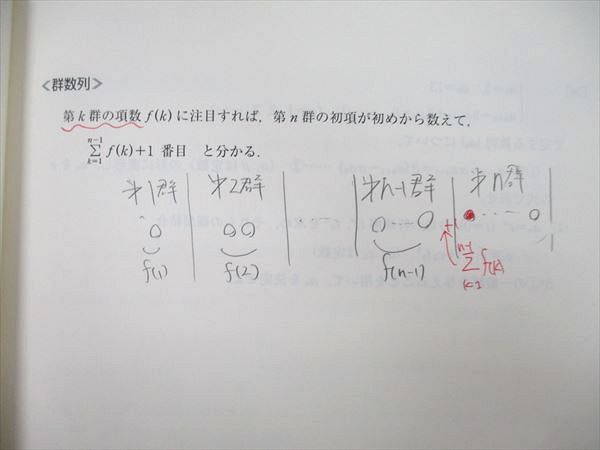 <群数列>
第k群の項数 f(k) に注目すれば，第n群の初項が初めから数えて，
\sum_{k=1}^{n-1} f(k)+1 番目 と分かる．
才1群 | 才2群 | ...... | 才n-1群 | 才n群
○ | ○○ | | ○ ○ | ●・・・・○
f(1) f(2) f(n-1)
+1
\sum_{k=1}^{n-1} f(k)